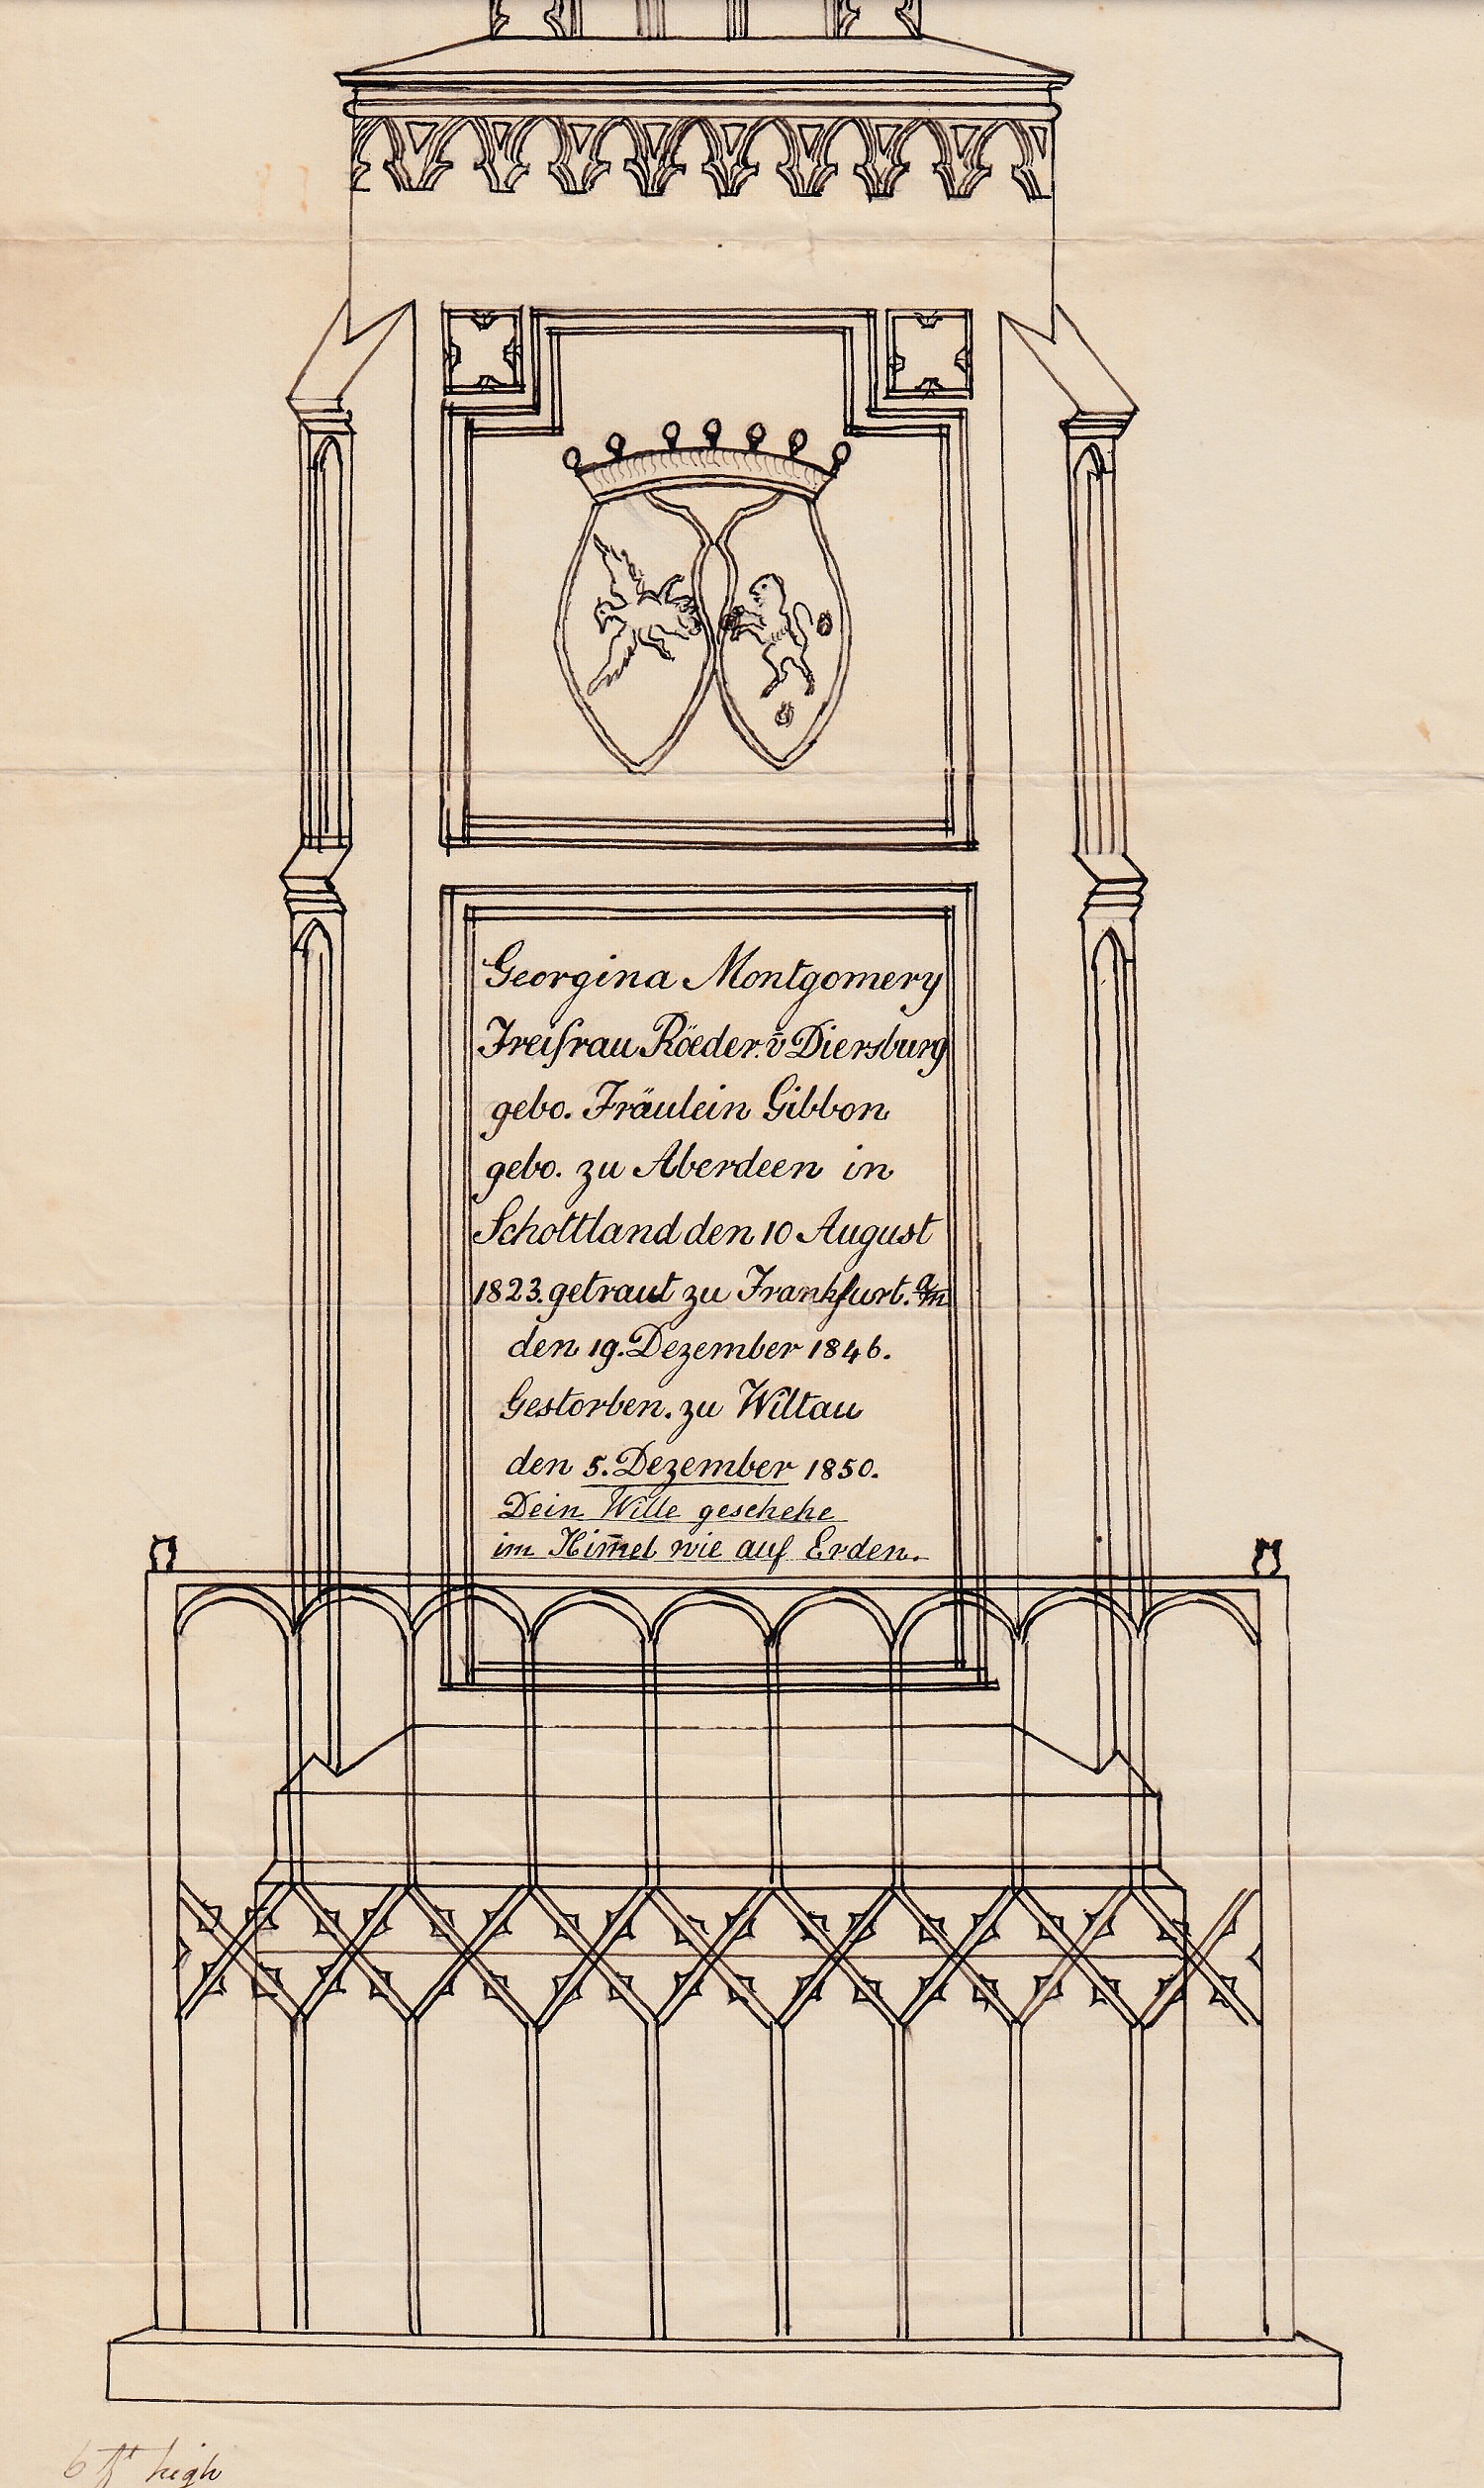 Georgina Montgomery
Freifrau Röeder. v̄ Diersburg
gebo. Fräulein Gibbon
gebo. zu Aberdeen in
Schottland den 10 August
1823. getraut zu Frankfurt. a/m
den 19. Dezember 1846.
Gestorben. zu Wiltau
den 5. Dezember 1850.
Dein Wille geschehe
im Him̄el wie auf Erden.
6 ft high